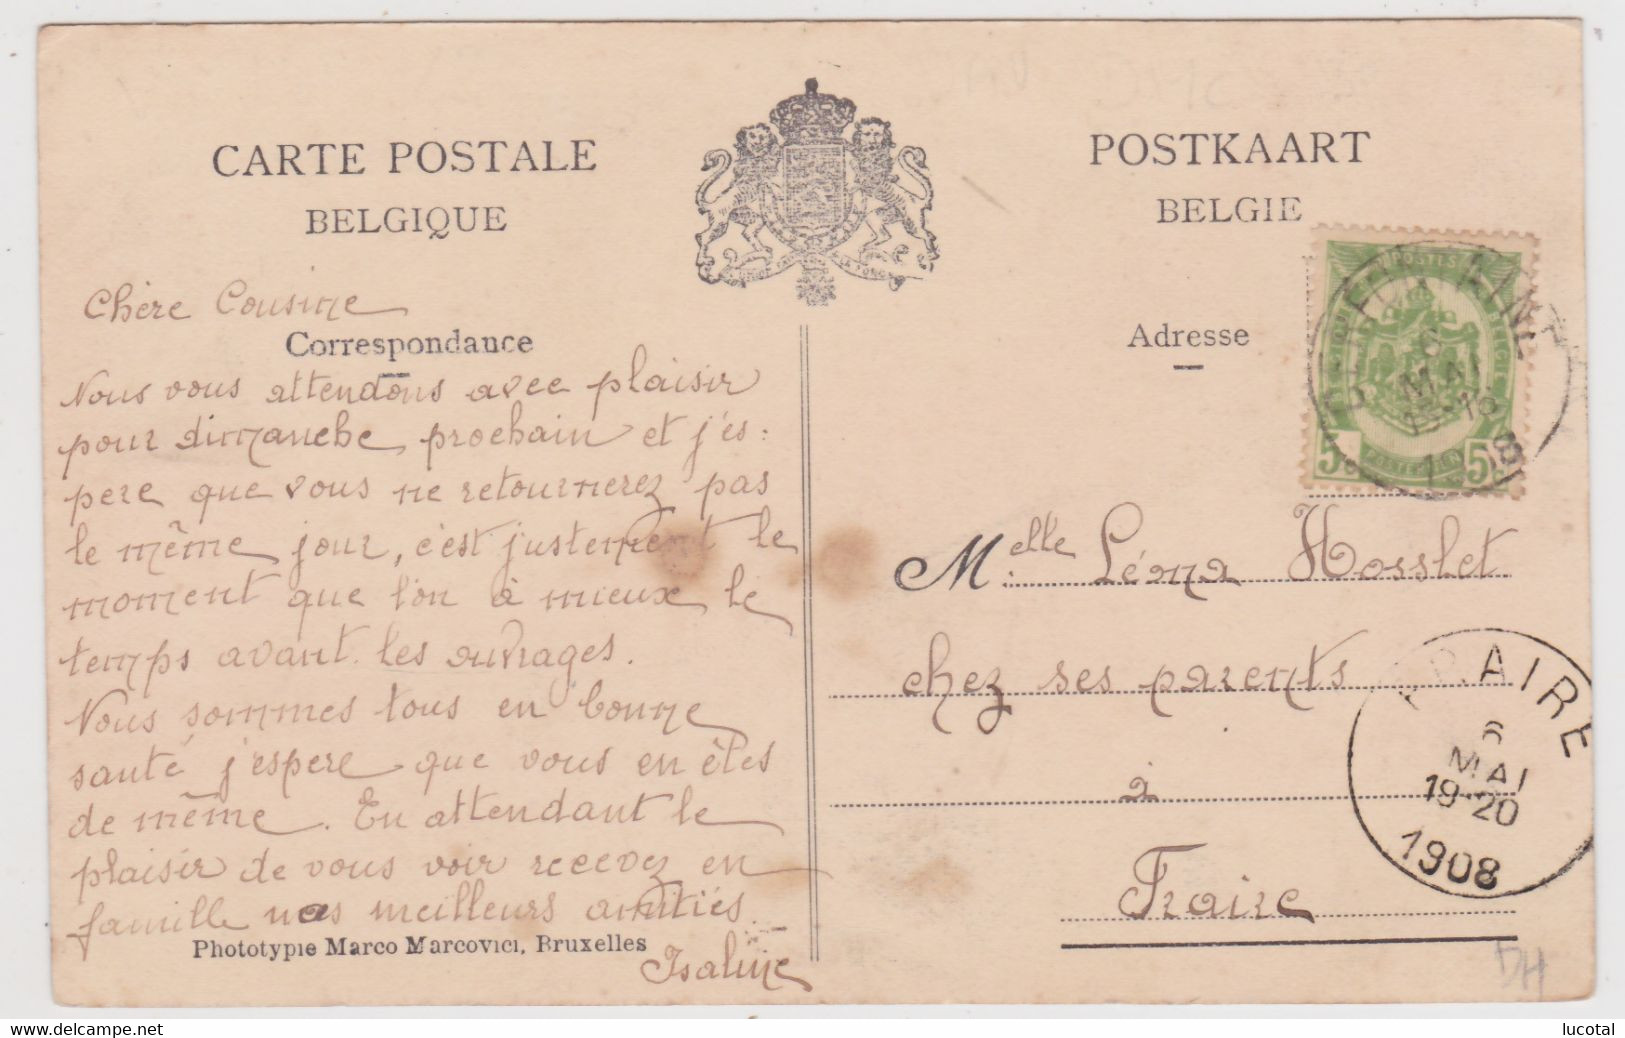 CARTE POSTALE
BELGIQUE
POSTKAART
BELGIE
Chère Cousine
Correspondance
Nous vous attendons avec plaisir
pour dimanche prochain et j'es:
pere que vous ne retournerez pas
le même jour, c'est justement le
moment que l'on à mieux le
temps avant les ouvrages.
Nous sommes tous en bonne
santé j'espere que vous en êtes
de même. En attendant le
plaisir de vous voir recevez en
famille nos meilleurs amitiés
Phototypie Marco Marcovici, Bruxelles
Isaline
Adresse
POSTES
5 POSTERIJEN 5
6
MAI
M.elle Léona Hosslet
chez ses parents
à
Fraire
FRAIRE
6
MAI
19-20
1908
DH
lucotal